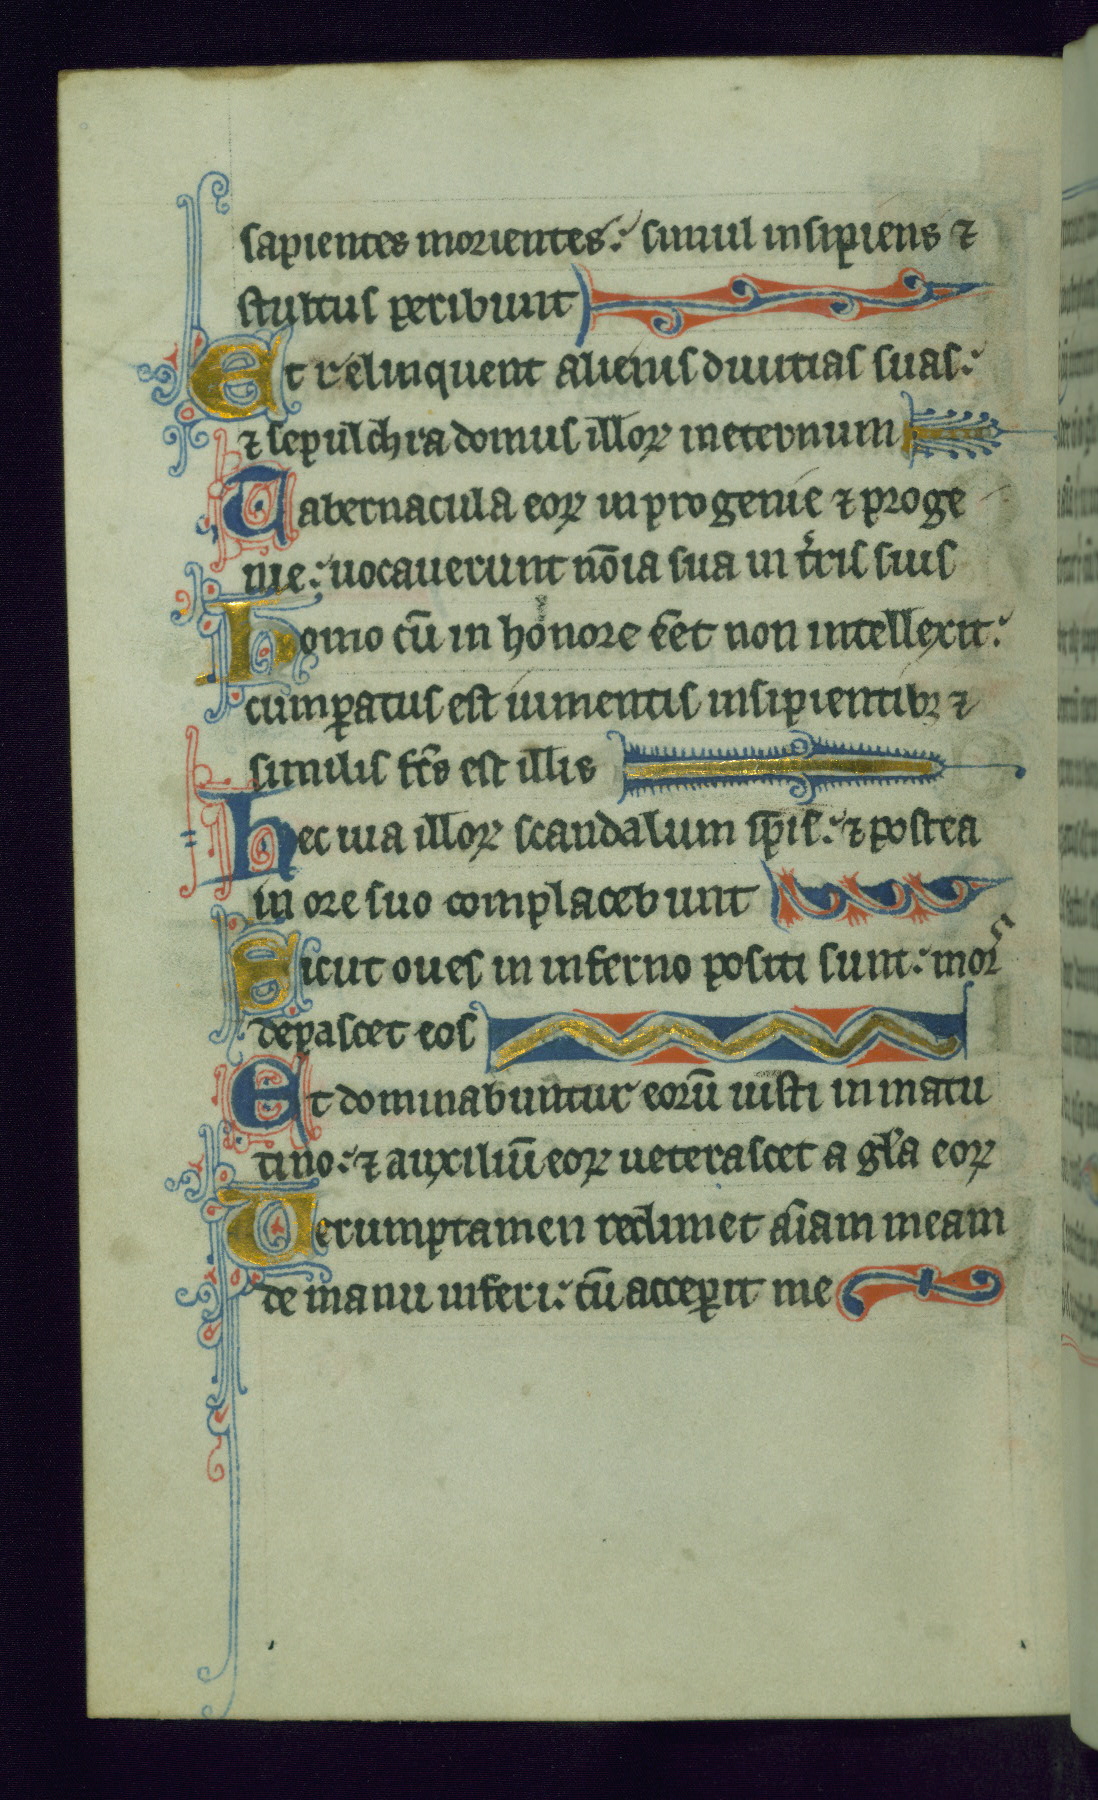 sapientes morientes: simul insipiens ⁊
stultus peribunt
Et relinquent alienis diuitias suas:
⁊ sepulchra domus illoꝝ ineternum
Tabernacula eoꝝ in progenie ⁊ proge
nie: uocauerunt nōia sua in t̄ris suis
Homo cū in honore ēet non intellexit:
cumꝑatus est iumentis insipientibꝫ ⁊
similis fc̄s est illis
Hec uia illoꝝ scandalum ip̄is: ⁊ postea
in ore suo complacebunt
Sicut oues in inferno positi sunt: mors
depascet eos
Et dominabuntur eorū iusti in matu
tino: ⁊ auxiliū eoꝝ ueterascet a gl̄a eoꝝ
Uerumptamen redimet aīam meam
de manu inferi: cū acceꝑit me